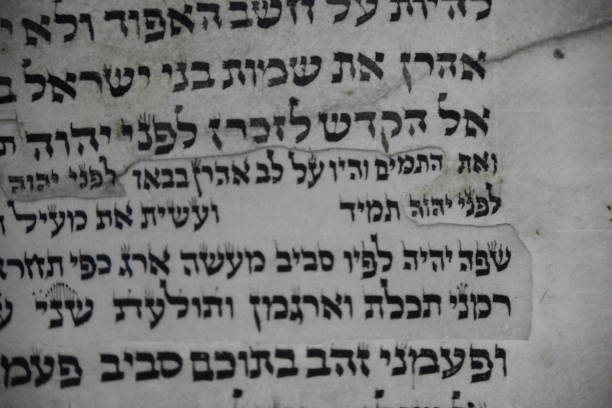 להיות על חשב האפוד ולא י
אהרן את שמות בני ישראל ב
אל הקדש לזכרן לפני יהוה ת
ואת התמים והיו על לב אהרן בבאו לפני יהוה
לפני יהוה תמיד ועשית את מעיל ה
שפה יהיה לפיו סביב מעשה ארג כפי תחרא
רמני תכלת וארגמן ותולעת שני ע
ופעמני זהב בתוכם סביב פעמ